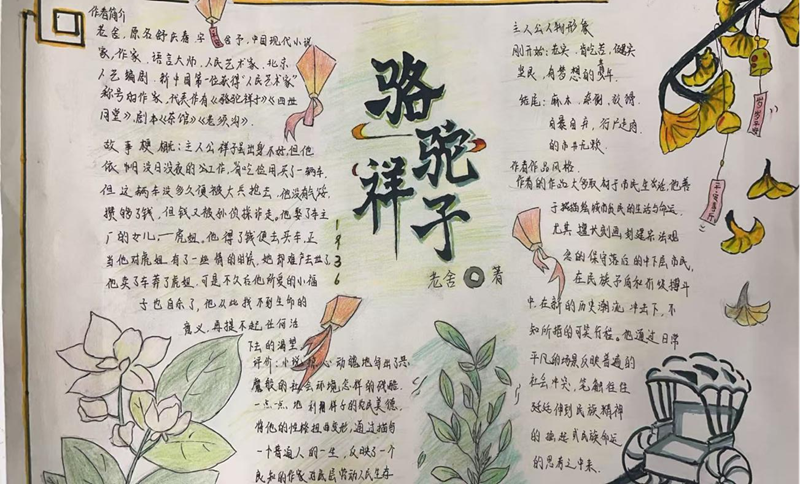 作者简介
老舍，原名舒庆春，字舍予，中国现代小说
家，作家，语言大师，人民艺术家，北京
人艺编剧，新中国第一位获得"人民艺术家"
称号的作家，代表作有《骆驼祥子》《四世
同堂》，剧本《茶馆》《老
故事梗概：主人公祥子虽出身不好，但他
依
但这辆车没多久便被大兵抢去，他没有气馁，
攒够了钱，但钱又被孙侦探诈走。他娶了车主
厂的女儿——虎妞。他得了钱便去买车，正
当他对虎妞，有了一些情的时候，她却难产去世了，
他卖了车葬了虎妞，可是不久后他所爱的小福
子也自杀了，他从此找不到生命的
意义，再提不起任何活
下去的渴望
评价：小说
魔般的社会环境怎样的残酷
一点一点地利用祥子的农民美德，
将他的性格扭曲变形，通过描写
一个普通人的一生，反映了一个
良知的作家对底层劳动人民生存
骆驼祥子
老舍 著
1936
主人公人物形象
刚开始：老实，肯吃苦，健实
坚民，有梦想的青年
结尾：麻木，潦倒，狡猾
自暴自弃，行尸走肉
的
作者作品风格
作者的作品大多取材于市民生活，他善
于描绘城市贫民的生活与命运
尤其擅长刻画
念的保守落后的中下层市民，
在民族矛盾和阶级搏斗
中，在新的历史潮流冲击下，不
知所措的可笑行径。他通过日常
平凡的场景反映普遍的
社会冲突，笔触往往
延伸到民族精神
的挖起或民族命运
的思考之中来
平安喜乐